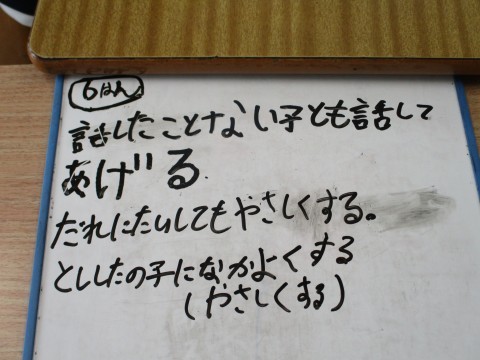 6はん
話したことない子とも話して
あげる
だれにたいしてもやさしくする。
とししたの子になかよくする
(やさしくする)